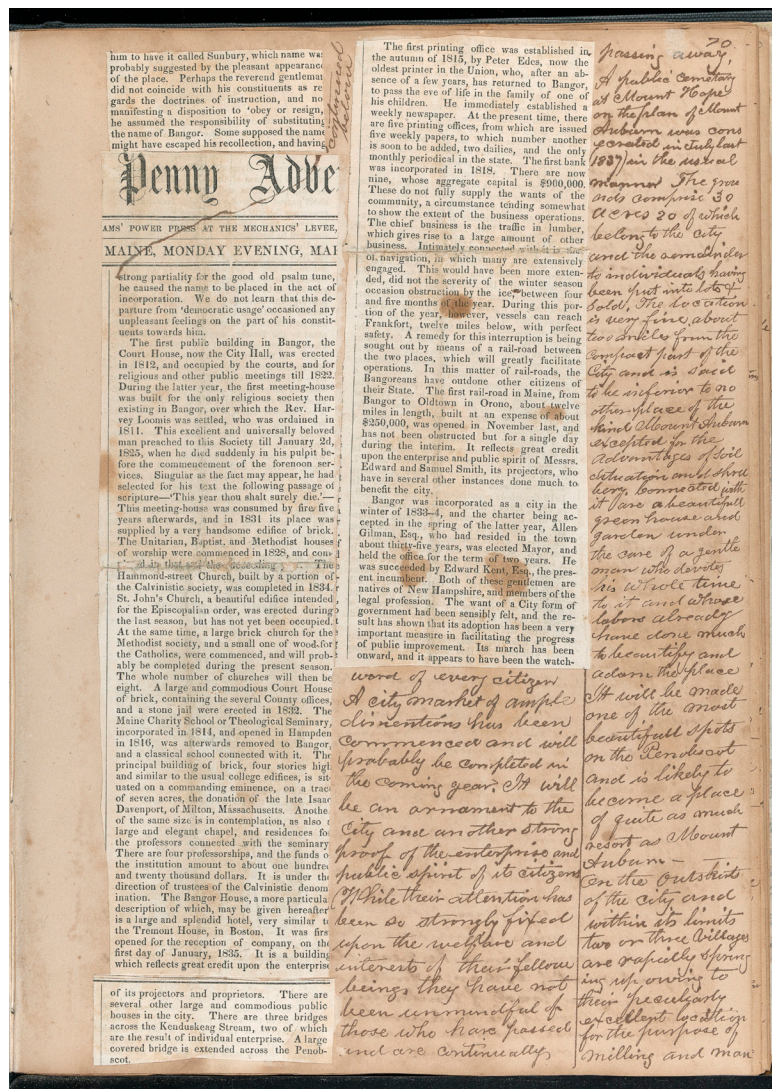 him to have it called Sunbury, which name was
probably suggested by the pleasant appearance
of the place. Perhaps the reverend gentleman
did not coincide with his constituents as re
gards the doctrines of instruction, and no
manifesting a disposition to 'obey or resign,
he assumed the responsibility of substituting
the name of Bangor. Some supposed the name
might have escaped his recollection, and having
continued
below
Penny Adve
AMS' POWER PRESS AT THE MECHANICS' LEVEE,
MAINE, MONDAY EVENING, MAI
strong partiality for the good old psalm tune,
he caused the name to be placed in the act of
incorporation. We do not learn that this de-
parture from 'democratic usage' occasioned any
unpleasant feelings on the part of his constit-
uents towards him.
The first public building in Bangor, the
Court House, now the City Hall, was erected
in 1812, and occupied by the courts, and for
religious and other public meetings till 1822.
During the latter year, the first meeting-house
was built for the only religious society then
existing in Bangor, over which the Rev. Har-
vey Loomis was settled, who was ordained in
1811. This excellent and universally beloved
man preached to this Society till January 2d,
1825, when he died suddenly in his pulpit be-
fore the commencement of the forenoon ser-
vices. Singular as the fact may appear, he had
selected for his text the following passage of
scripture—'This year thou shalt surely die.'—
This meeting-house was consumed by fire five
years afterwards, and in 1831 its place was
supplied by a very handsome edifice of brick.
The Unitarian, Baptist, and Methodist houses
of worship were commenced in 1828, and com-
The
Hammond-street Church, built by a portion of
the Calvinistic society, was completed in 1834.
St. John's Church, a beautiful edifice intended
for the Episcopalian order, was erected during
the last season, but has not yet been occupied.
At the same time, a large brick church for the
Methodist society, and a small one of wood for
the Catholics, were commenced, and will prob-
ably be completed during the present season.
The whole number of churches will then be
eight. A large and commodious Court House
of brick, containing the several County offices,
and a stone jail were erected in 1832. The
Maine Charity School or Theological Seminary,
incorporated in 1814, and opened in Hampden
in 1816, was afterwards removed to Bangor,
and a classical school connected with it. The
principal building of brick, four stories high
and similar to the usual college edifices, is sit-
uated on a commanding eminence, on a tract
of seven acres, the donation of the late Isaac
Davenport, of Milton, Massachusetts. Another
of the same size is in contemplation, as also a
large and elegant chapel, and residences for
the professors connected with the seminary
There are four professorships, and the funds o
the institution amount to about one hundred
and twenty thousand dollars. It is under the
direction of trustees of the Calvinistic denom
ination. The Bangor House, a more particula
description of which, may be given hereafter
is a large and splendid hotel, very similar to
the Tremont House, in Boston. It was firs
opened for the reception of company, on the
first day of January, 1835. It is a building
which reflects great credit upon the enterprise
of its projectors and proprietors. There are
several other large and commodious public
houses in the city. There are three bridges
across the Kenduskeag Stream, two of which
are the result of individual enterprise. A large
covered bridge is extended across the Penob-
scot.
The first printing office was established in
the autumn of 1815, by Peter Edes, now the
oldest printer in the Union, who, after an ab-
sence of a few years, has returned to Bangor,
to pass the eve of life in the family of one of
his children. He immediately established a
weekly newspaper. At the present time, there
are five printing offices, from which are issued
five weekly papers, to which number another
is soon to be added, two dailies, and the only
monthly periodical in the state. The first bank
was incorporated in 1818. There are now
nine, whose aggregate capital is $900,000.
These do not fully supply the wants of the
community, a circumstance tending somewhat
to show the extent of the business operations.
The chief business is the traffic in lumber,
which gives rise to a large amount of other
business. Intimately connected with it is that
of navigation, in which many are extensively
engaged. This would have been more exten-
ded, did not the severity of the winter season
occasion obstruction by the ice, between four
and five months of the year. During this por-
tion of the year, however, vessels can reach
Frankfort, twelve miles below, with perfect
safety. A remedy for this interruption is being
sought out by means of a rail-road between
the two places, which will greatly facilitate
operations. In this matter of rail-roads, the
Bangoreans have outdone other citizens of
their State. The first rail-road in Maine, from
Bangor to Oldtown in Orono, about twelve
miles in length, built at an expense of about
$250,000, was opened in November last, and
has not been obstructed but for a single day
during the interim. It reflects great credit
upon the enterprise and public spirit of Messrs.
Edward and Samuel Smith, its projectors, who
have in several other instances done much to
benefit the city.
Bangor was incorporated as a city in the
winter of 1833-4, and the charter being ac-
cepted in the spring of the latter year, Allen
Gilman, Esq., who had resided in the town
about thirty-five years, was elected Mayor, and
held the office for the term of two years. He
was succeeded by Edward Kent, Esq., the pres-
ent incumbent. Both of these gentlemen are
natives of New Hampshire, and members of the
legal profession. The want of a City form of
government had been sensibly felt, and the re-
sult has shown that its adoption has been a very
important measure in facilitating the progress
of public improvement. Its march has been
onward, and it appears to have been the watch-
word of every citizen
A city market of ample
dimentions has been
commenced and will
probably be completed in
the coming year. It will
be an ornament to the
city and another strong
proof of the enterprise and
public spirit of its citizens
While their attention has
been so strongly fixed
upon the welfare and
interests of their fellow
beings they have not
been unmindful of
those who have passed
and are continually
70
passing away,
A public cemetary
at Mount Hope
on the plan of Mount
Auburn was cons
ecrated in July last
1837) in the usual
manner The grou
nds comprise 30
acres 20 of which
belong to the city
and the remainder
to individuals having
been put into lots &
sold. The location
is very fine about
two miles from the
compact part of the
City and is said
to be inferior to no
other place of the
kind Mount Auburn
excepted for the
advantages of soil
situation and shrub
bery. Connected with
it are a beautifull
green house and
garden under
the care of a gentle
man who devotes
his whole time
to it and whose
labors already
have done much
to beautify and
adorn the place
It will be made
one of the most
beautifull spots
on the Penobscot
and is likely to
become a place
of quite as much
resort as Mount
Auburn—
On the outskirts
of the city and
within its limits
two or three Villages
are rapidly spring
ing up owing to
their peculyarly
excellent location
for the purpose of
milling and man